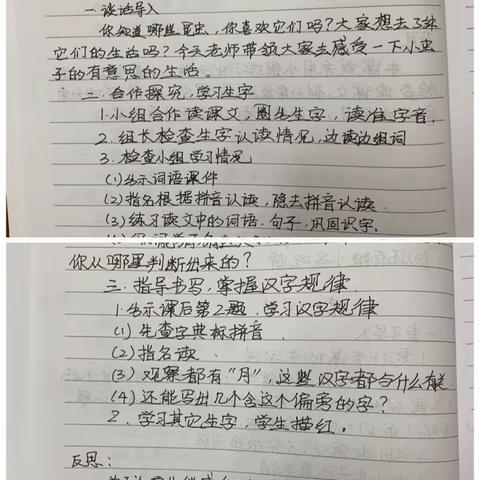 一.谈话导入
你知道哪些昆虫,你喜欢它们吗?大家想去了解
它们的生活吗?今天老师带领大家去感受一下小虫
子的有意思的生活。
二.合作探究,学习生字
1.小组合作读课文,圈生生字,读准字音.
2.组长检查生字认读情况,边读边组词
3.检查小组学习情况
(1)出示词语课件
(2)指名根据拼音认读,隐去拼音认读.
(3)练习读文中的词语.句子,巩固识字。
你从哪里判断出来的?
三.指导书写,掌握汉字规律.
1.出示课后第2题,学习汉字规律
(1)先查字典标拼音.
(2)指名读.
(3)观察都有“月”,这些汉字都与什么有关.
(4)还能写出几个含这个偏旁的字?
2、学习其它生字,学生描红。
反思: